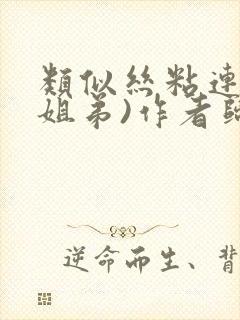 類似絲粘連
姐弟)作者
逆命而生、背